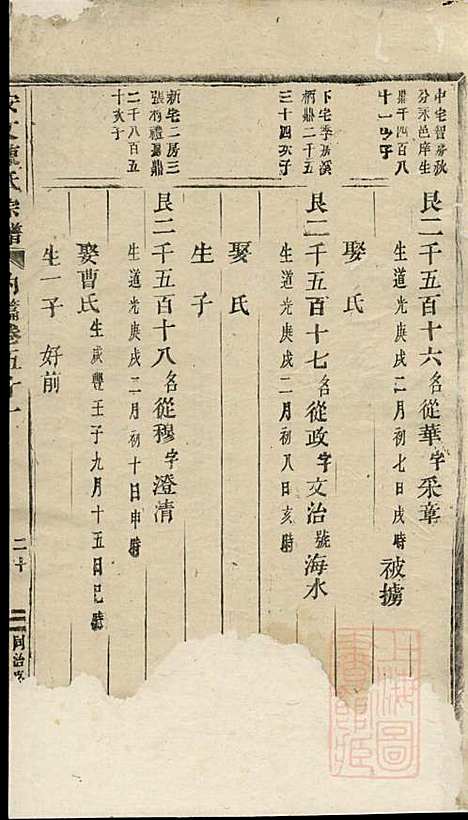 中宅智房秋
分永邑庠生
鼎千四百八
十一 子
艮二千五百十六名從華字采章
生道光庚戌二月初七日戌時 被擄
娶 氏
下宅季房溪
柄鼎二千五
三十四次子
艮二千五百十七名從政字文治號海水
生道光庚戌二月初八日亥時
娶 氏
生 子
新宅二房三
張柄禮瀛鼎
二千八百五
十次子
艮二千五百十八名從穆字澄清
生道光庚戌二月初十日申時
娶曹氏生咸豐壬子九月十五日巳時
生一子 好前
陳氏宗譜
內篇卷五十一
二十
同治
上海圖書館藏